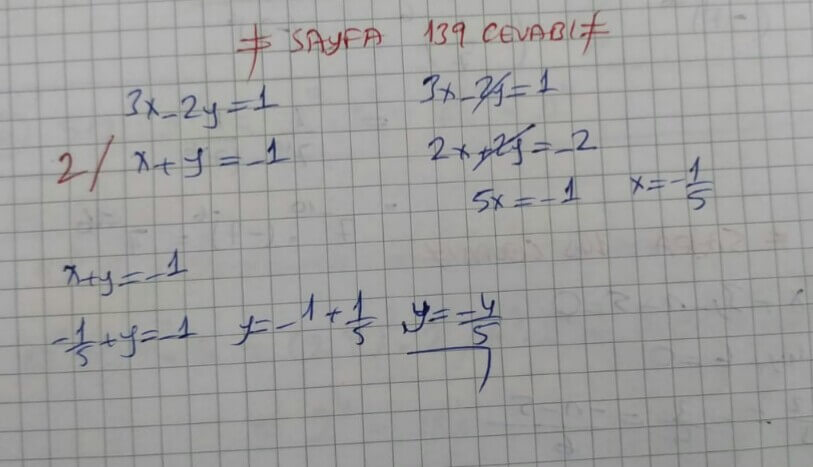 ≠ SAYFA 139 CEVABI ≠
3x-2y=1
2/ x+y=-1
3x-2y=1
2x+2y=-2
5x=-1 x=-1/5
x+y=-1
-1/5+y=-1 y=-1+1/5 y=-4/5